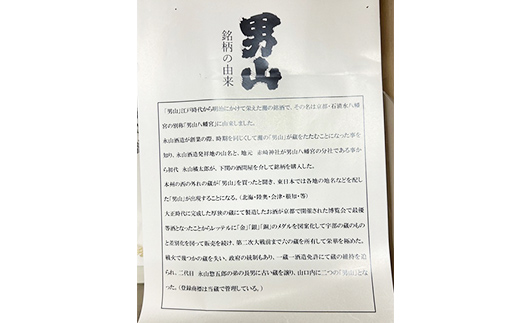 男山
銘柄の由来
「男山」江戸時代から明治にかけて栄えた灘の銘酒で、その名は京都・石清水八幡
宮の別称「男山八幡宮」に由来しました。
永山酒造が創業の際、時期を同じくして灘の「男山」が蔵をたたむことになった事を
知り、永山酒造発祥地の山名と、地元 赤崎神社が男山八幡宮の分社である事か
ら初代 永山橘太郎が、下関の酒問屋を介して銘柄を購入した。
本州の西の外れの蔵が「男山」を買ったと聞き、東日本では各地の地名などを配し
た「男山」が出現することになる。(北海・陸奥・会津・根知・等)
大正時代に完成した厚狭の蔵にて製造したお酒が京都で開催された博覧会で最優
等酒となったことからレッテルに「金」「銀」「銅」のメダルを図案化して宇部の蔵のもの
と差別化を図って販売を続け、第二次大戦前まで六の蔵を所有して栄華を極めた。
戦火で幾つかの蔵を失い、政府の統制もあり、一蔵一酒造免許にて蔵の維持を迫
られ、二代目 永山惣五郎の弟の長男に古い蔵を譲り、山口内に二つの「男山」とな
った。(登録商標は当蔵で管理している。)